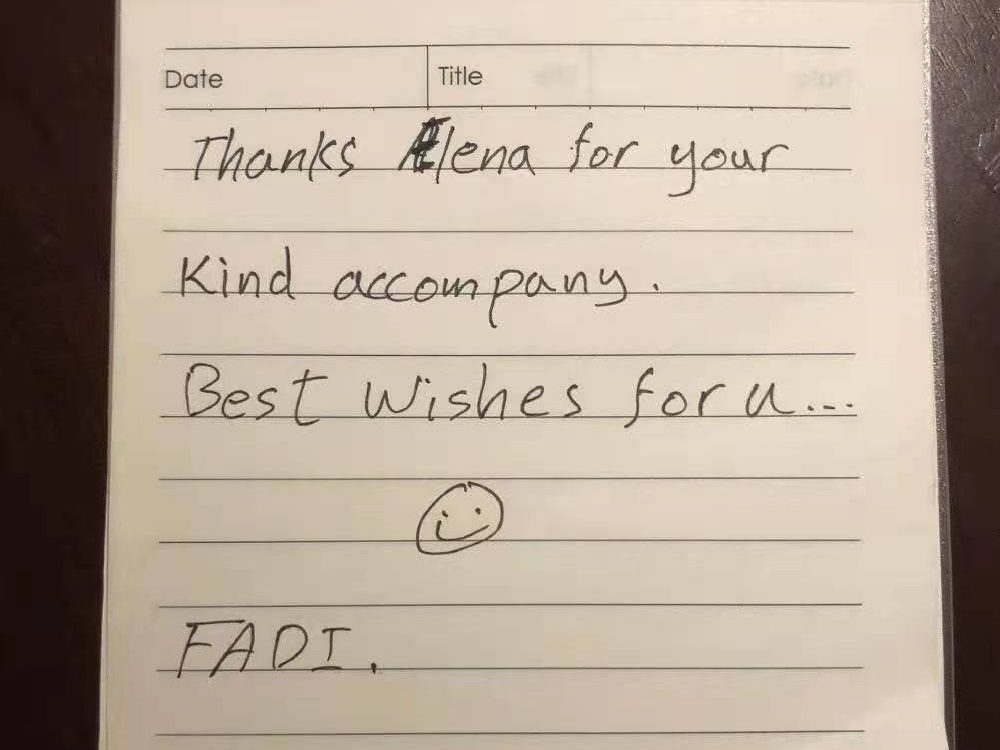 Date Title
Thanks Elena for your
Kind accompany.
Best Wishes for u...
FADI.